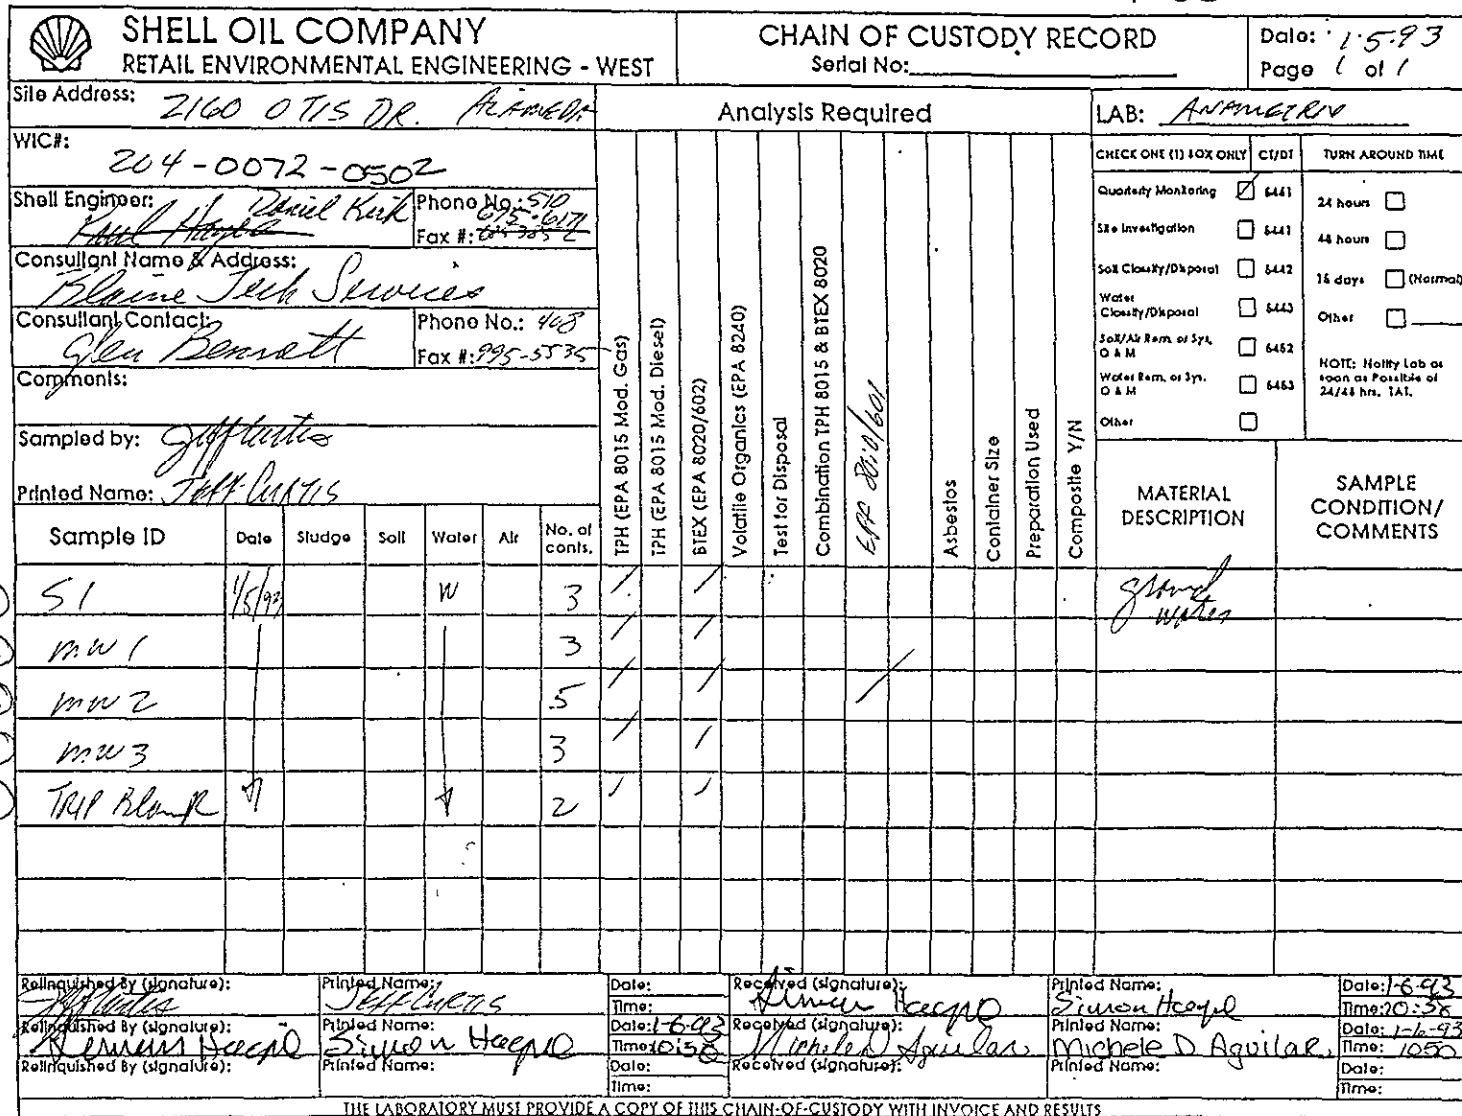 SHELL OIL COMPANY
RETAIL ENVIRONMENTAL ENGINEERING - WEST
CHAIN OF CUSTODY RECORD
Serial No:
Date: 1-5-93
Page 1 of 1
Site Address: 2160 OTIS DR. ALAMEDA
WIC#: 204-0072-0502
Shell Engineer: Daniel Kirk
Phone No.: 510
Fax #:
Consultant Name & Address:
Blaine Tech Services
Consultant Contact: Glen Bennett
Phone No.: 408
Fax #: 995-5535
Comments:
Sampled by: Jeff Curtis
Printed Name: Jeff Curtis
Analysis Required
LAB: 
CHECK ONE (1) BOX ONLY CT/DT TURN AROUND TIME
Quarterly Monitoring 6441
Site Investigation 6441
Soil Classify/Disposal 6442
Water Classify/Disposal 6443
Soil/Air Rem. or Sys. O & M 6452
Water Rem. or Sys. O & M 6453
Other
24 hours
48 hours
15 days (Normal)
Other
NOTE: Notify Lab as soon as Possible of 24/48 hrs. TAT.
Sample ID Date Sludge Soil Water Air No. of conts.
TPH (EPA 8015 Mod. Gas)
TPH (EPA 8015 Mod. Diesel)
BTEX (EPA 8020/602)
Volatile Organics (EPA 8240)
Test for Disposal
Combination TPH 8015 & BTEX 8020
8010/601
Asbestos
Container Size
Preparation Used
Composite Y/N
MATERIAL DESCRIPTION
SAMPLE CONDITION/ COMMENTS
S1 1/5/93 W 3 / / ground water
MW1 3 / /
MW2 5 / / /
MW3 3 / /
TRIP Blank 2 / /
Relinquished By (signature): Jeff Curtis Printed Name: JEFF CURTIS Date: Time: Received (signature): Printed Name: Simon Date: 1-6-93 Time:
Relinquished By (signature): Printed Name: Simon Date: 1-6-93 Time: 10:50 Received (signature): Michele D Aguilar Printed Name: Michele D Aguilar Date: 1-6-93 Time: 1050
Relinquished By (signature): Printed Name: Date: Time: Received (signature): Printed Name: Date: Time:
THE LABORATORY MUST PROVIDE A COPY OF THIS CHAIN-OF-CUSTODY WITH INVOICE AND RESULTS